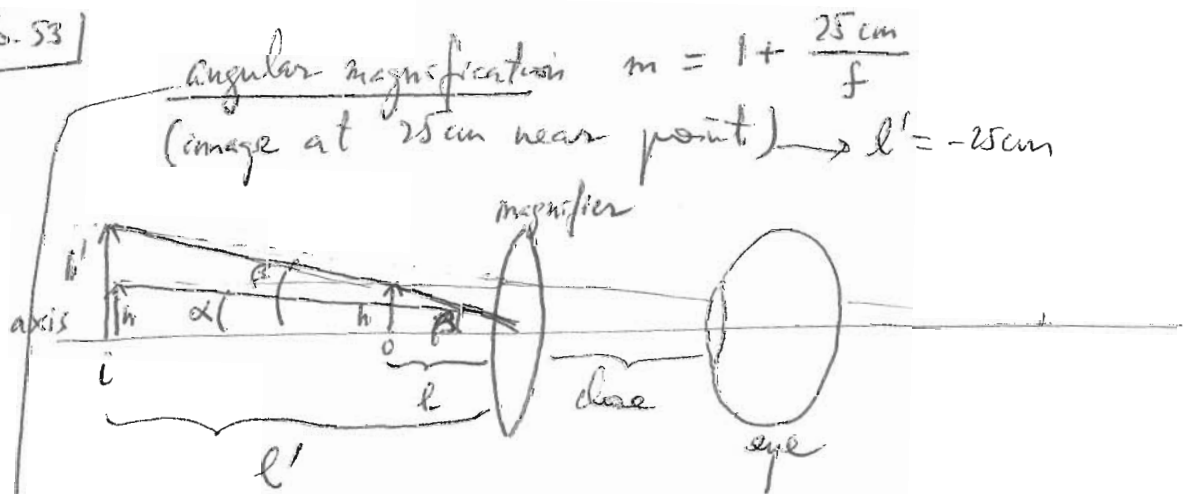 53
angular magnification m = 1 + 25 cm / f
(image at 25 cm near point) → l' = -25cm
magnifier
h'
h
α
β
h
β
axis
i
o
l
close
l'
eye